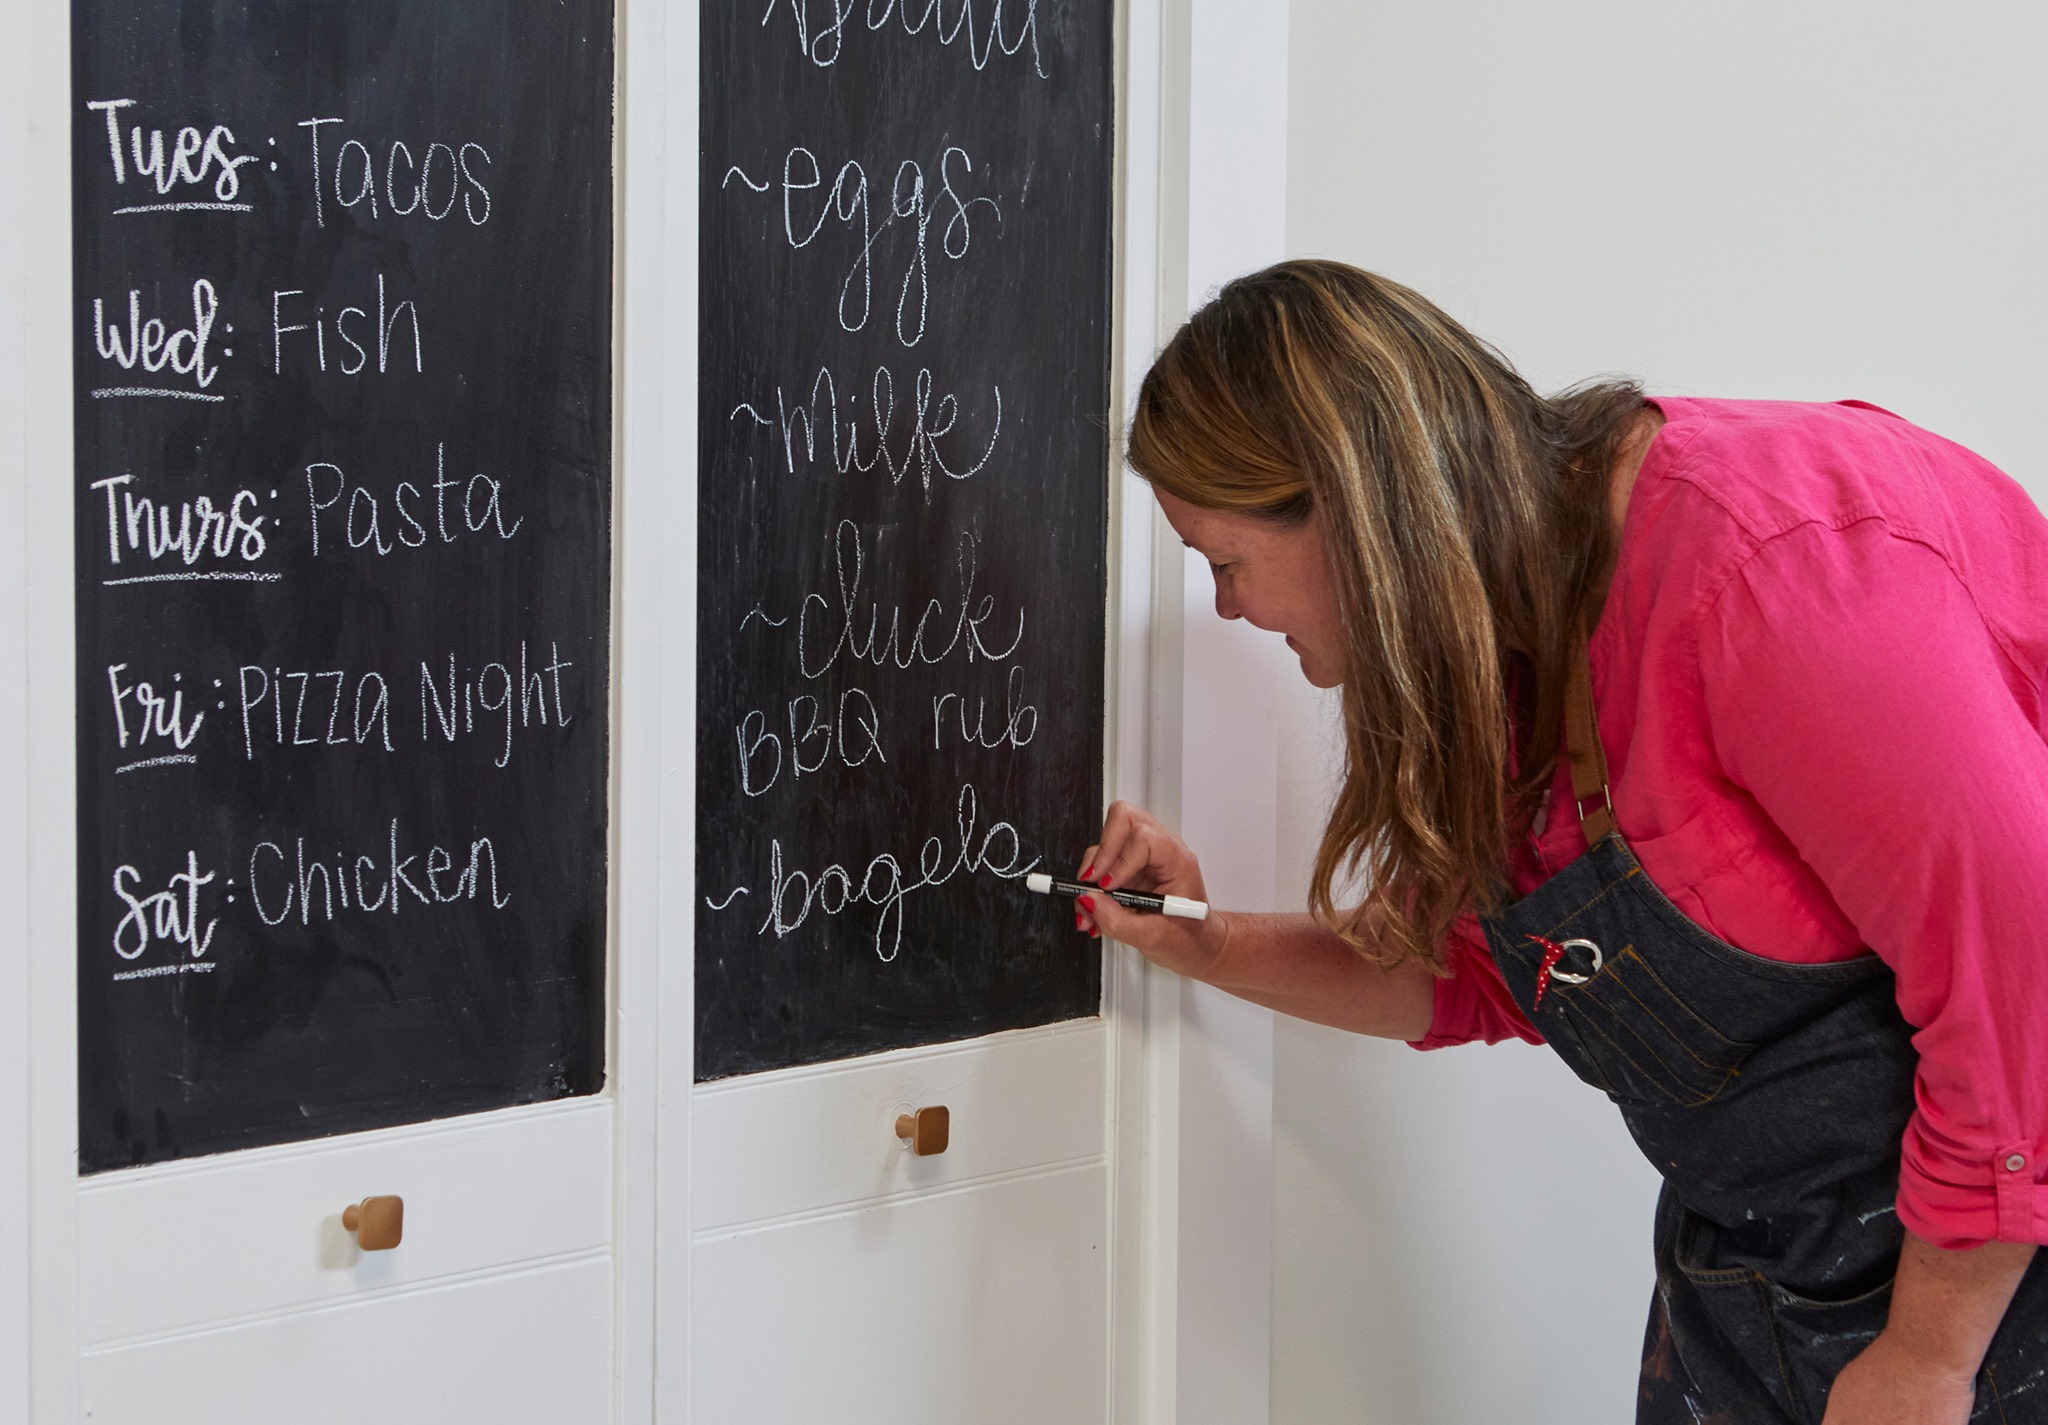 Tues: Tacos
Wed: Fish
Thurs: Pasta
Fri: Pizza Night
Sat: Chicken
~eggs
~Milk
~cluck
BBQ rub
~bagels